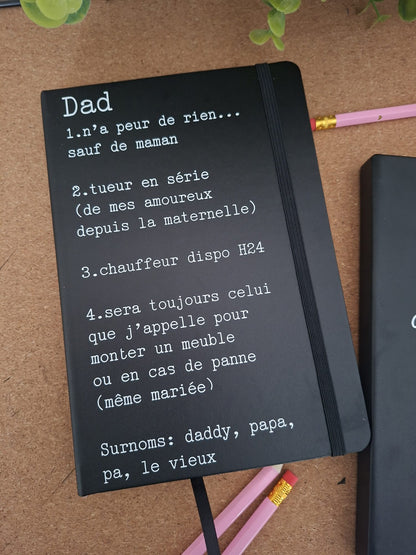 Dad
1.n'a peur de rien...
sauf de maman
2.tueur en série
(de mes amoureux
depuis la maternelle)
3.chauffeur dispo H24
4.sera toujours celui
que j'appelle pour
monter un meuble
ou en cas de panne
(même mariée)
Surnoms: daddy, papa,
pa, le vieux